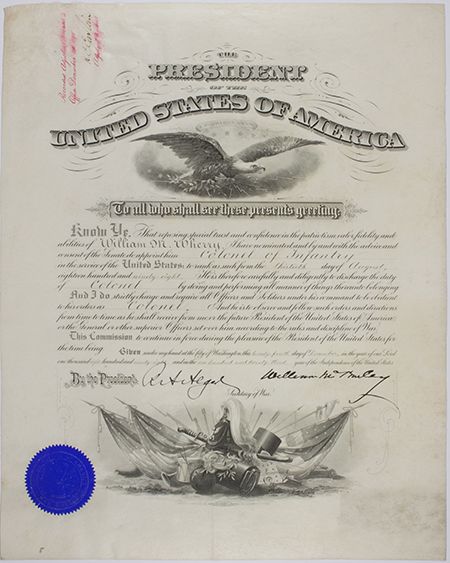 THE
PRESIDENT
OF THE
UNITED STATES OF AMERICA
To all who shall see these presents greeting:
Know Ye, That reposing special trust and confidence in the patriotism, valor, fidelity and
abilities of William M. Wherry, I have nominated and by and with the advice and
consent of the Senate do appoint him Colonel of Infantry
in the service of the United States: to rank as such from the day of August,
eighteen hundred and ninety eight. He is therefore carefully and diligently to discharge the duty
of Colonel by doing and performing all manner of things thereunto belonging.
And I do strictly charge and require all Officers and Soldiers under his command to be obedient
to his orders as Colonel. And he is to observe and follow such orders and directions
from time to time as he shall receive from me or the future President of the United States of America
or the General or other superior Officers set over him, according to the rules and discipline of War.
This Commission to continue in force during the pleasure of the President of the United States for
the time being.
Given under my hand at the City of Washington, this day of in the year of our Lord
one thousand and in the one hundred and twenty year of the Independence of the United States
By the President: R A Alger William McKinley
Secretary of War.